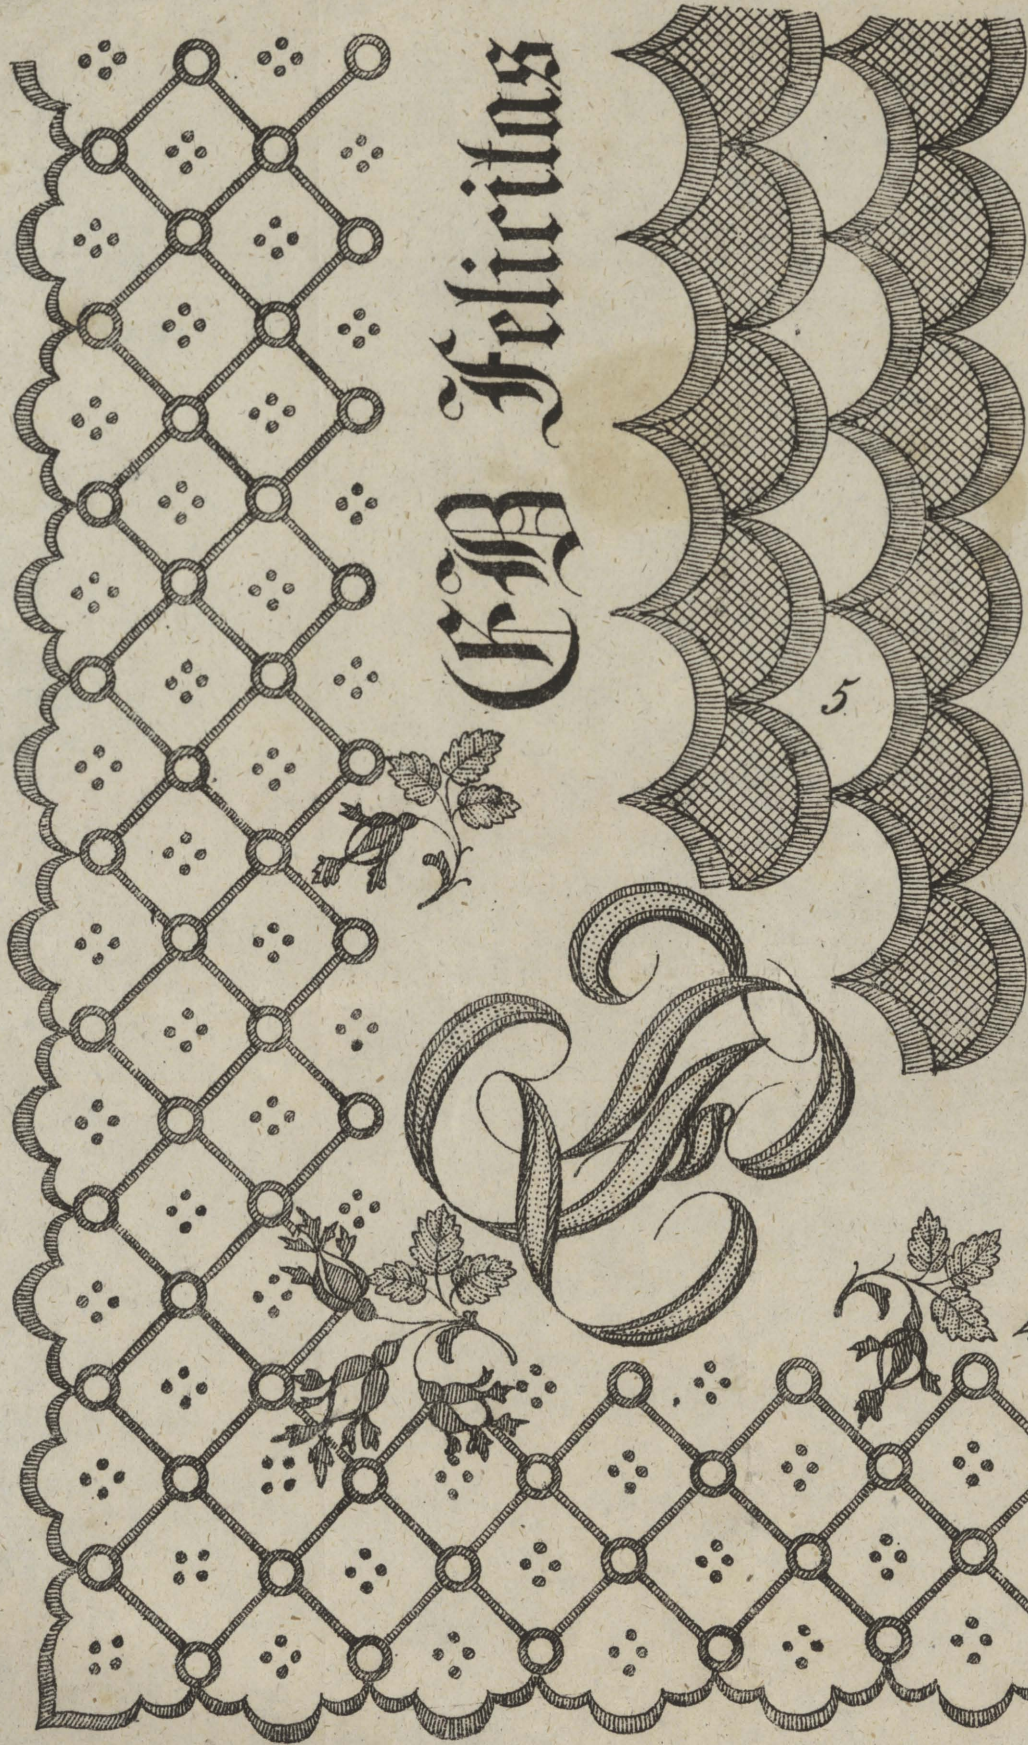 EB Felicitas
5